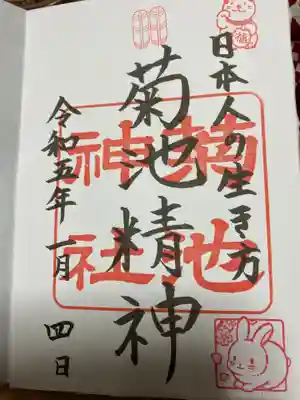 日本人の生き方
菊池精神
菊池
神社
令和五年一月四日